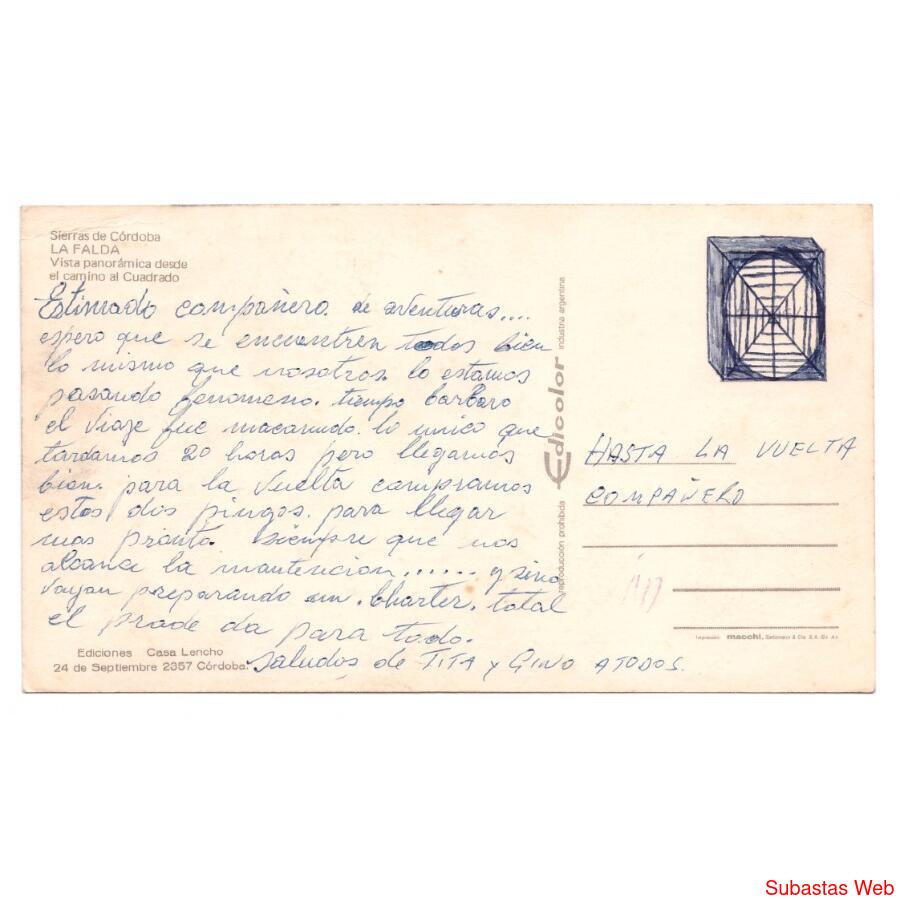 Sierras de Córdoba
LA FALDA
Vista panorámica desde
el camino al Cuadrado
Estimado compañero de aventuras....
espero que se encuentren todos bien
lo mismo que nosotros. lo estamos
pasando fenomeno. tiempo barbaro
el viaje fue macanudo. lo unico que
tardamos 20 horas pero llegamos
bien. para la vuelta compramos
estos dos pingos. para llegar
mas pronto. siempre que nos
alcance la mantencion...... y sino
vayan preparando un. Charter. total
el prode da para todo.
saludos de TITA y GINO A TODOS.
Ediciones Casa Lencho
24 de Septiembre 2357 Córdoba.
reproducción prohibida Edicolor industria argentina
HASTA LA VUELTA
COMPAÑERO
Impresión: macchi,
Subastas Web